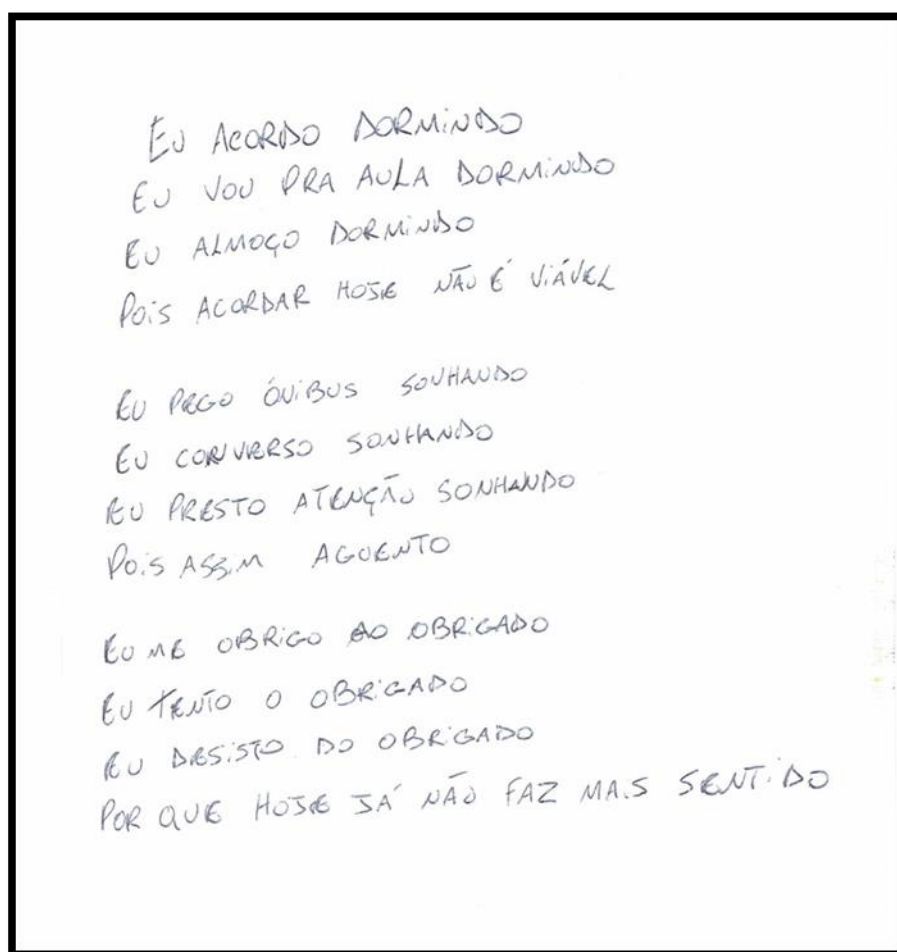 EU ACORDO DORMINDO
EU VOU PRA AULA DORMINDO
EU ALMOÇO DORMINDO
POIS ACORDAR HOJE NÃO É VIÁVEL
EU PEGO ÔNIBUS SONHANDO
EU CONVERSO SONHANDO
EU PRESTO ATENÇÃO SONHANDO
POIS ASSIM AGUENTO
EU ME OBRIGO AO OBRIGADO
EU TENTO O OBRIGADO
EU DESISTO DO OBRIGADO
POR QUE HOJE JÁ NÃO FAZ MAIS SENTIDO